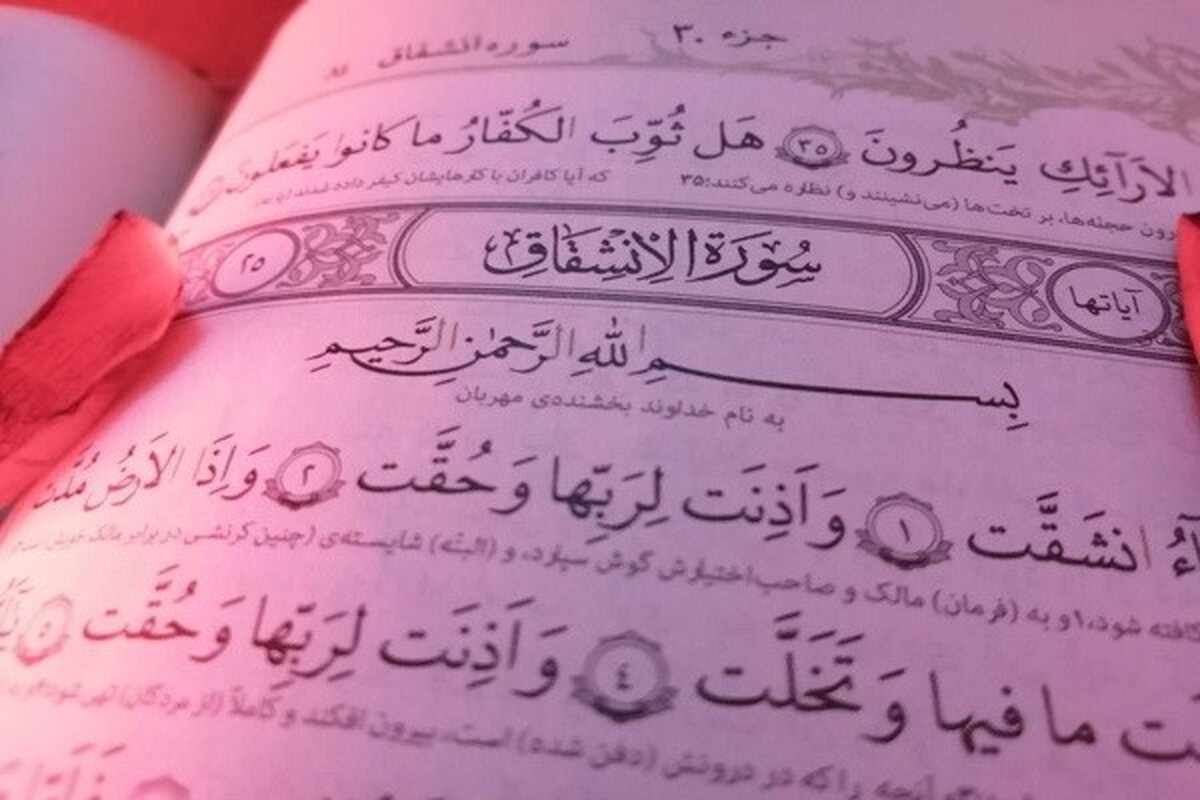 جزء ۳۰ سوره انشقاق ۸۴
الاَرَآئِكِ يَنظُرونَ ۳۵ هَل ثُوِّبَ الكُفّارُ ما كانوا يَفعَلونَ
حجله‌ها، بر تخت‌ها (می‌نشینند و) نظاره می‌کنند؛۳۵ که آیا کافران با کارهایشان کیفر داده شدند
آياتها سُورَةُ الاِنشِقاقِ ۲۵
بِسمِ اللهِ الرَّحمٰنِ الرَّحيمِ
به نام خداوند بخشنده‌ی مهربان
انشَقَّت ۱ وَ اَذِنَت لِرَبِّها وَ حُقَّت ۲ وَ اِذَا الاَرضُ مُدَّت
شود،۱ و به (فرمان) مالک و صاحب‌اختیارش گوش سپارد، و (البتّه) شایسته‌ی (چنین کرنشی در برابر مالک خویش
ما فيها وَ تَخَلَّت ٤ وَ اَذِنَت لِرَبِّها وَ حُقَّت ۵
آنچه را که در درونش (دفن شده) است، بیرون افکند و کاملاً (از مردگان) تهی شود